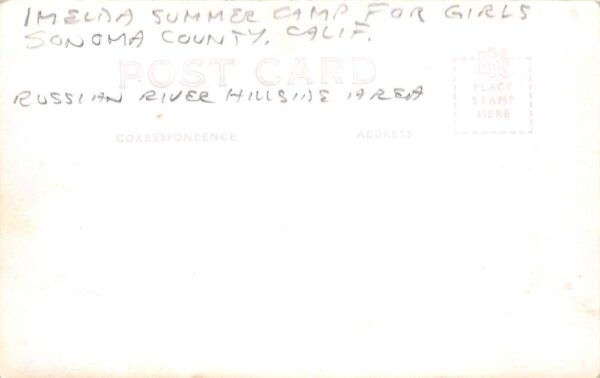 IMELDA SUMMER CAMP FOR GIRLS
SONOMA COUNTY, CALIF.
POST CARD
RUSSIAN RIVER HILLSIDE AREA
PLACE
STAMP
HERE
CORRESPONDENCE
ADDRESS